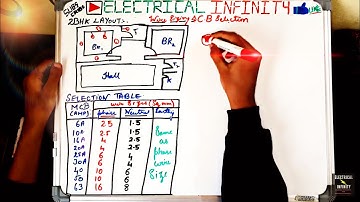 SUBSCRIBE ELECTRICAL INFINITY
2BHK LAYOUT:-
Wire Sizing & CB Selection
T.
BR2
Hall
K
SELECTION TABLE
MCB (AMP) wire Sizes (Sq.mm)
phase Neutral Earthing
6A 2.5 1.5
10A 2.5 1.5
16A 4 2.5
20A 4 2.5
25A 6 4
30A 6 4
40 10 6
50 10 6
63 16 8
Same
as
phase
wire
Size
ELECTRICAL
INFINITY